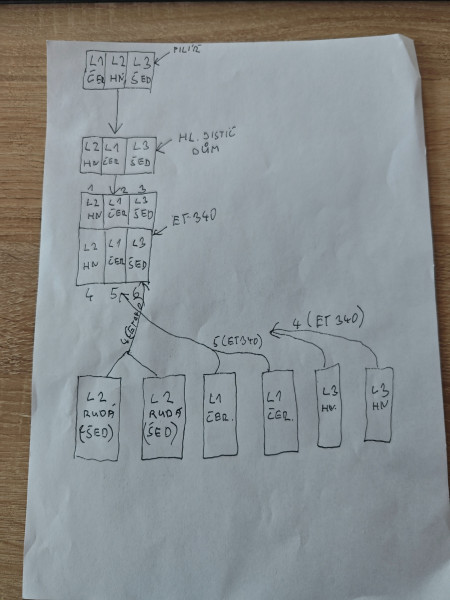 L1 L2 L3 PILÍŘ
ČER HN ŠED
L2 L1 L3 HL. JISTIČ
HN ČER ŠED DŮM
1 2 3
L2 L1 L3
HN ČER ŠED
ET-340
L2 L1 L3
HN ČER ŠED
4 5 6
5 (ET340)
4 (ET 340)
L2 L2 L1 L1 L3 L3
RUDÁ RUDÁ ČER. ČER. HN. HN
(ŠED) (ŠED)